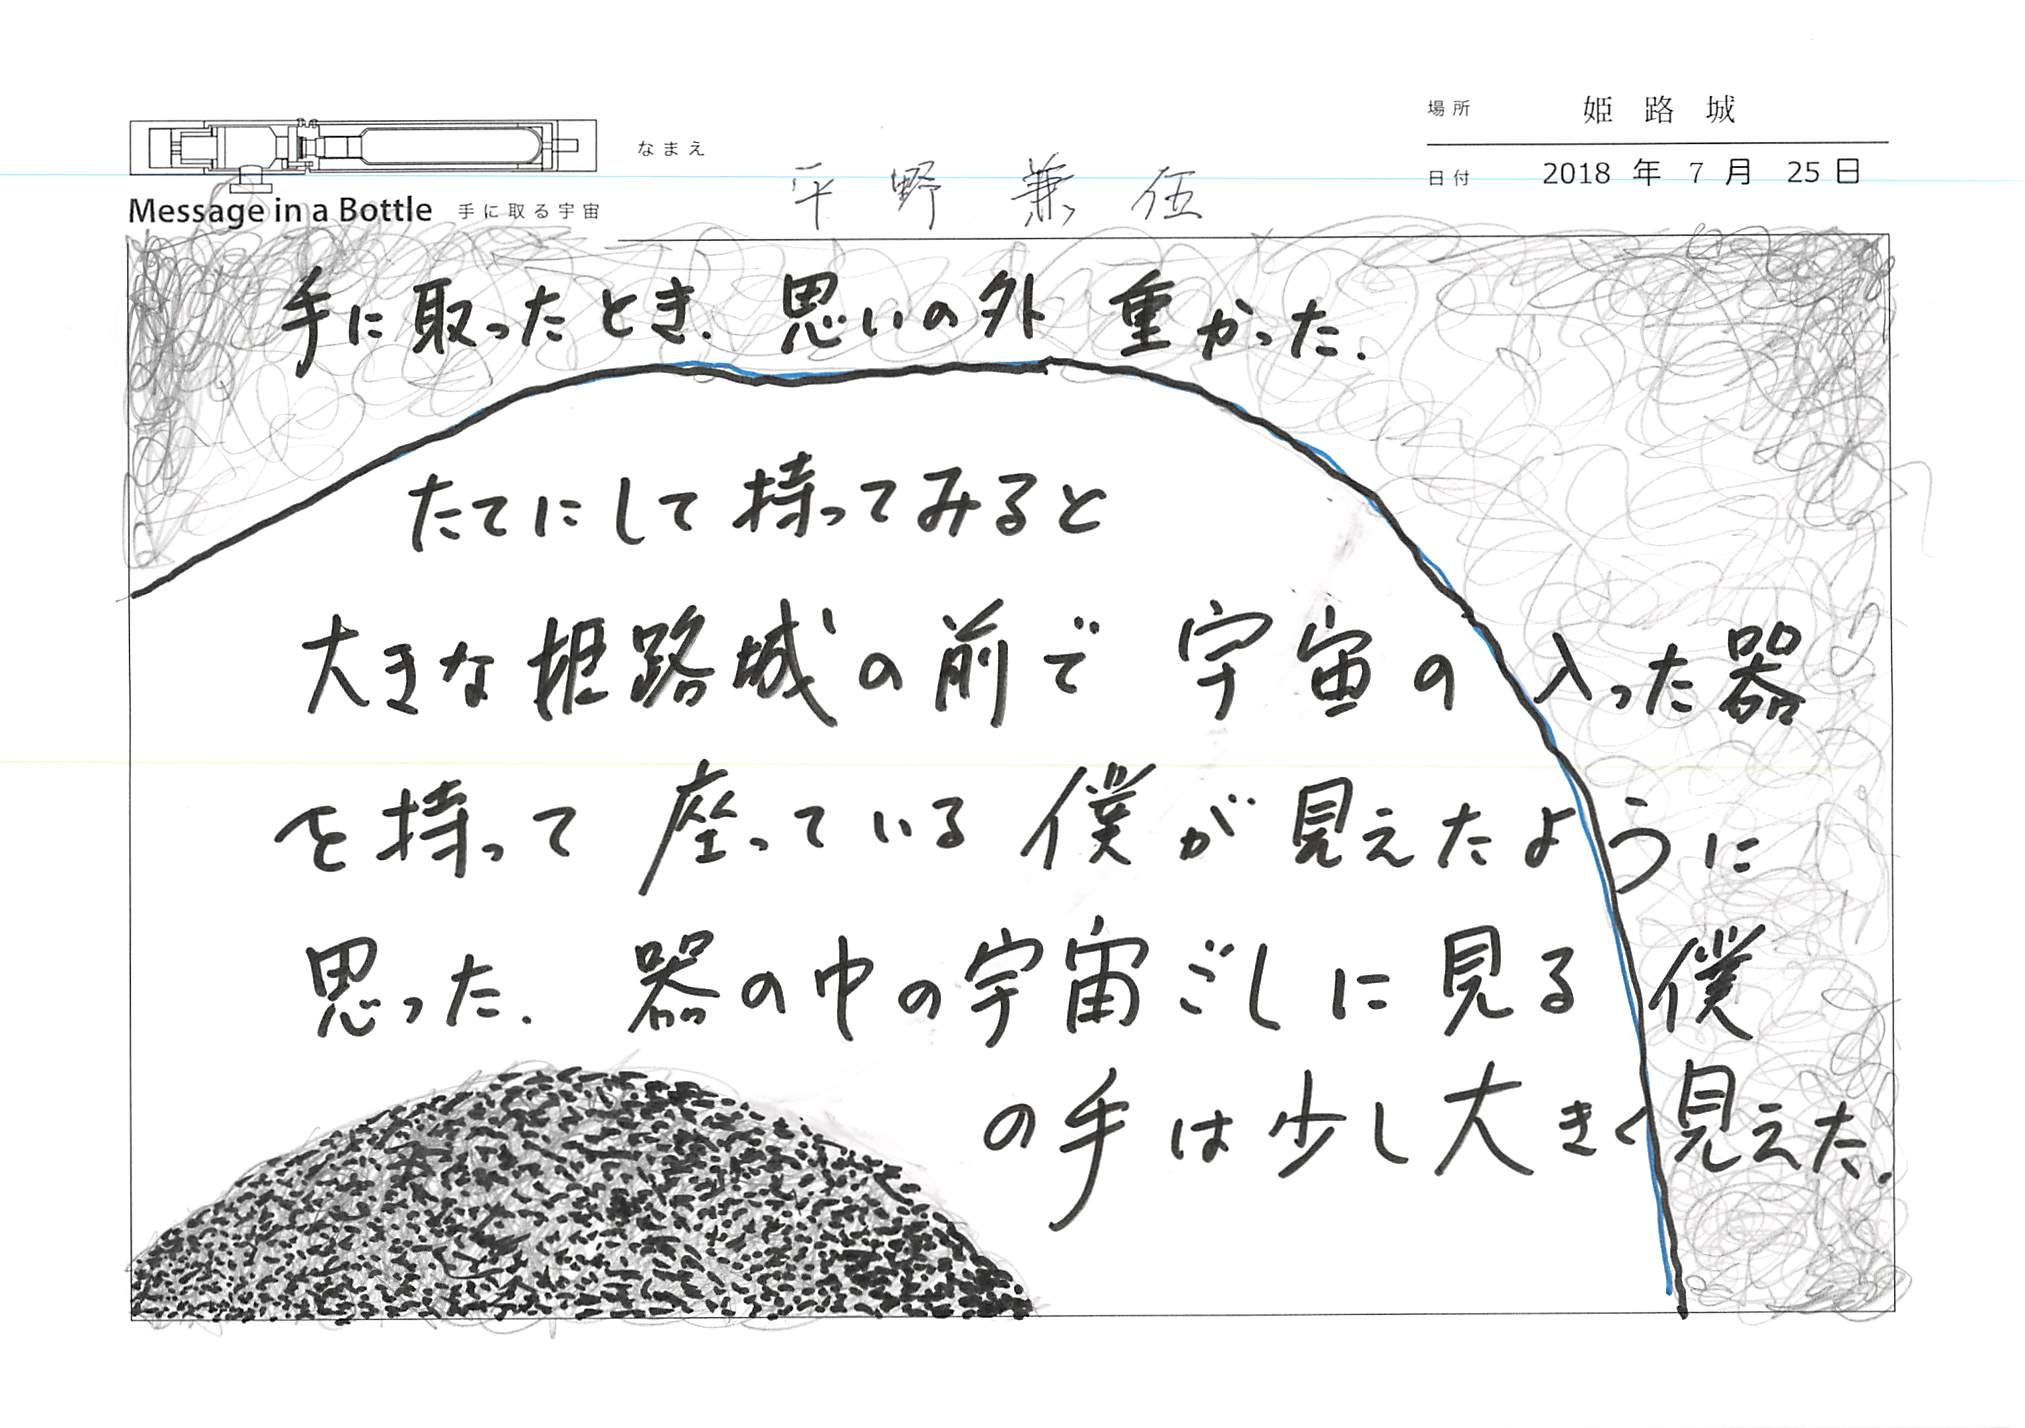 場所 姫路城
なまえ 平野兼伍
日付 2018 年 7 月 25 日
Message in a Bottle 手に取る宇宙
手に取ったとき、思いの外 重かった.
たてにして持ってみると
大きな姫路城の前で 宇宙の入った器
を持って 座っている 僕が見えたように
思った. 器の中の宇宙ごしに見る僕
の手は少し大きく見えた.